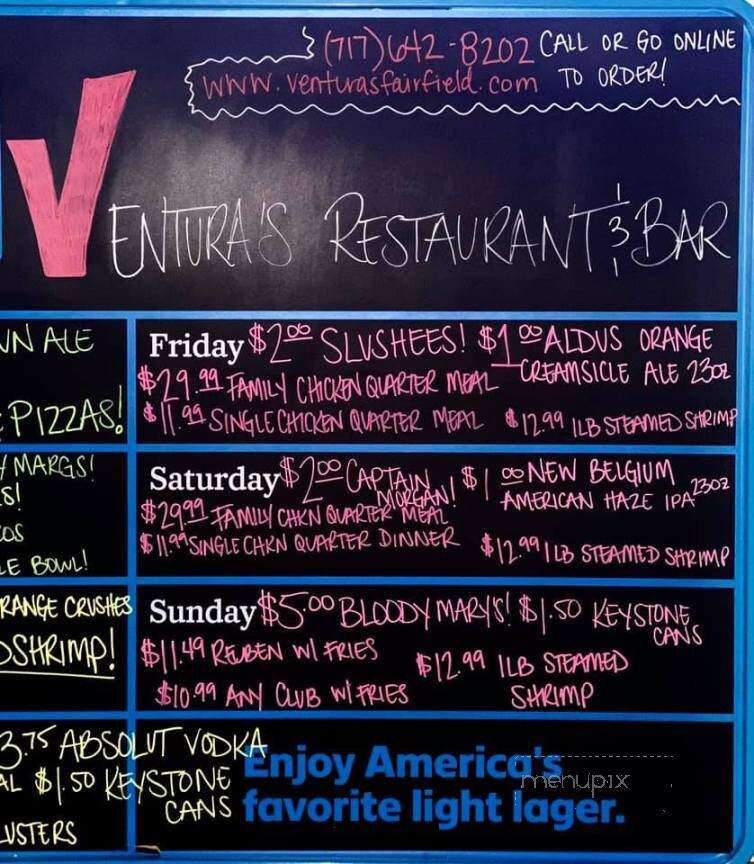 (717)642-8202 CALL OR GO ONLINE
www.venturasfairfield.com TO ORDER!
VENTURA'S RESTAURANT & BAR
WN ALE
PIZZAS!
MARGS!
S!
OS
LE BOWL!
RANGE CRUSHES
DSHRIMP!
3.75 ABSOLUT VODKA
AL $1.50 KEYSTONE
CANS
USTERS
Friday $2.00 SLUSHEES! $1.00 ALDUS ORANGE
CREAMSICLE ALE 23oz
$29.99 FAMILY CHICKEN QUARTER MEAL
$11.99 SINGLE CHICKEN QUARTER MEAL $12.99 1LB STEAMED SHRIMP
Saturday $2.00 CAPTAIN MORGAN! $1.00 NEW BELGIUM
AMERICAN HAZE IPA 23oz
$29.99 FAMILY CHKN QUARTER MEAL
$11.99 SINGLE CHKN QUARTER DINNER $12.99 1 LB STEAMED SHRIMP
Sunday $5.00 BLOODY MARY'S! $1.50 KEYSTONE
CANS
$11.49 REUBEN W/ FRIES $12.99 1LB STEAMED
$10.99 ANY CLUB W/ FRIES SHRIMP
Enjoy America's
favorite light lager.
menupix